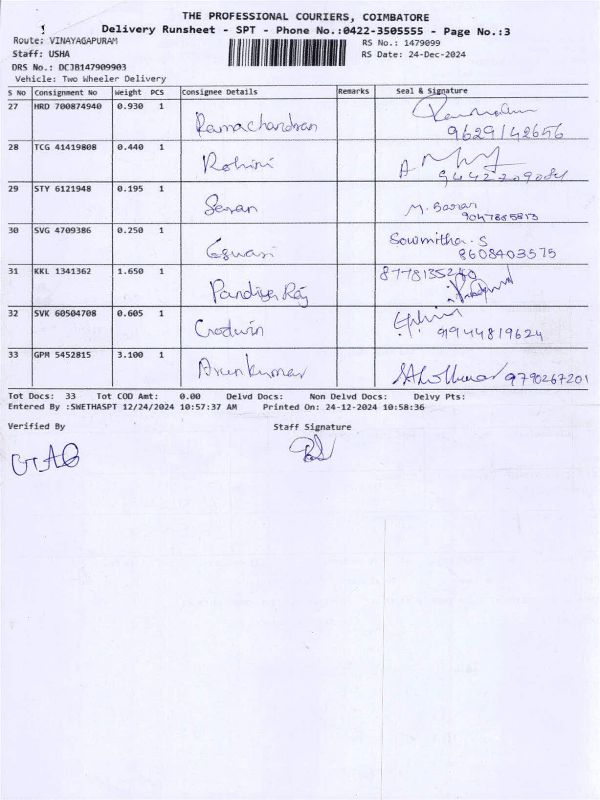 THE PROFESSIONAL COURIERS, COIMBATORE
Delivery Runsheet - SPT - Phone No.:0422-3505555 - Page No.:3
Route: VINAYAGAPURAM
RS No.: 1479099
Staff: USHA
RS Date: 24-Dec-2024
DRS No.: DCJB147909903
Vehicle: Two Wheeler Delivery
S No Consignment No Weight PCS Consignee Details Remarks Seal & Signature
27 HRD 700874940 0.930 1 Ramachandran 9629142656
28 TCG 41419808 0.440 1 Rohini
29 STY 6121948 0.195 1
30 SVG 4709386 0.250 1 Sowmitha. S 8608403575
31 KKL 1341362 1.650 1 Pandiya Raj
32 SVK 60504708 0.605 1 9944819624
33 GPM 5452815 3.100 1 Arunkumar 9790267201
Tot Docs: 33 Tot COD Amt: 0.00 Delvd Docs: Non Delvd Docs: Delvy Pts:
Entered By :SWETHASPT 12/24/2024 10:57:37 AM Printed On: 24-12-2024 10:58:36
Verified By Staff Signature